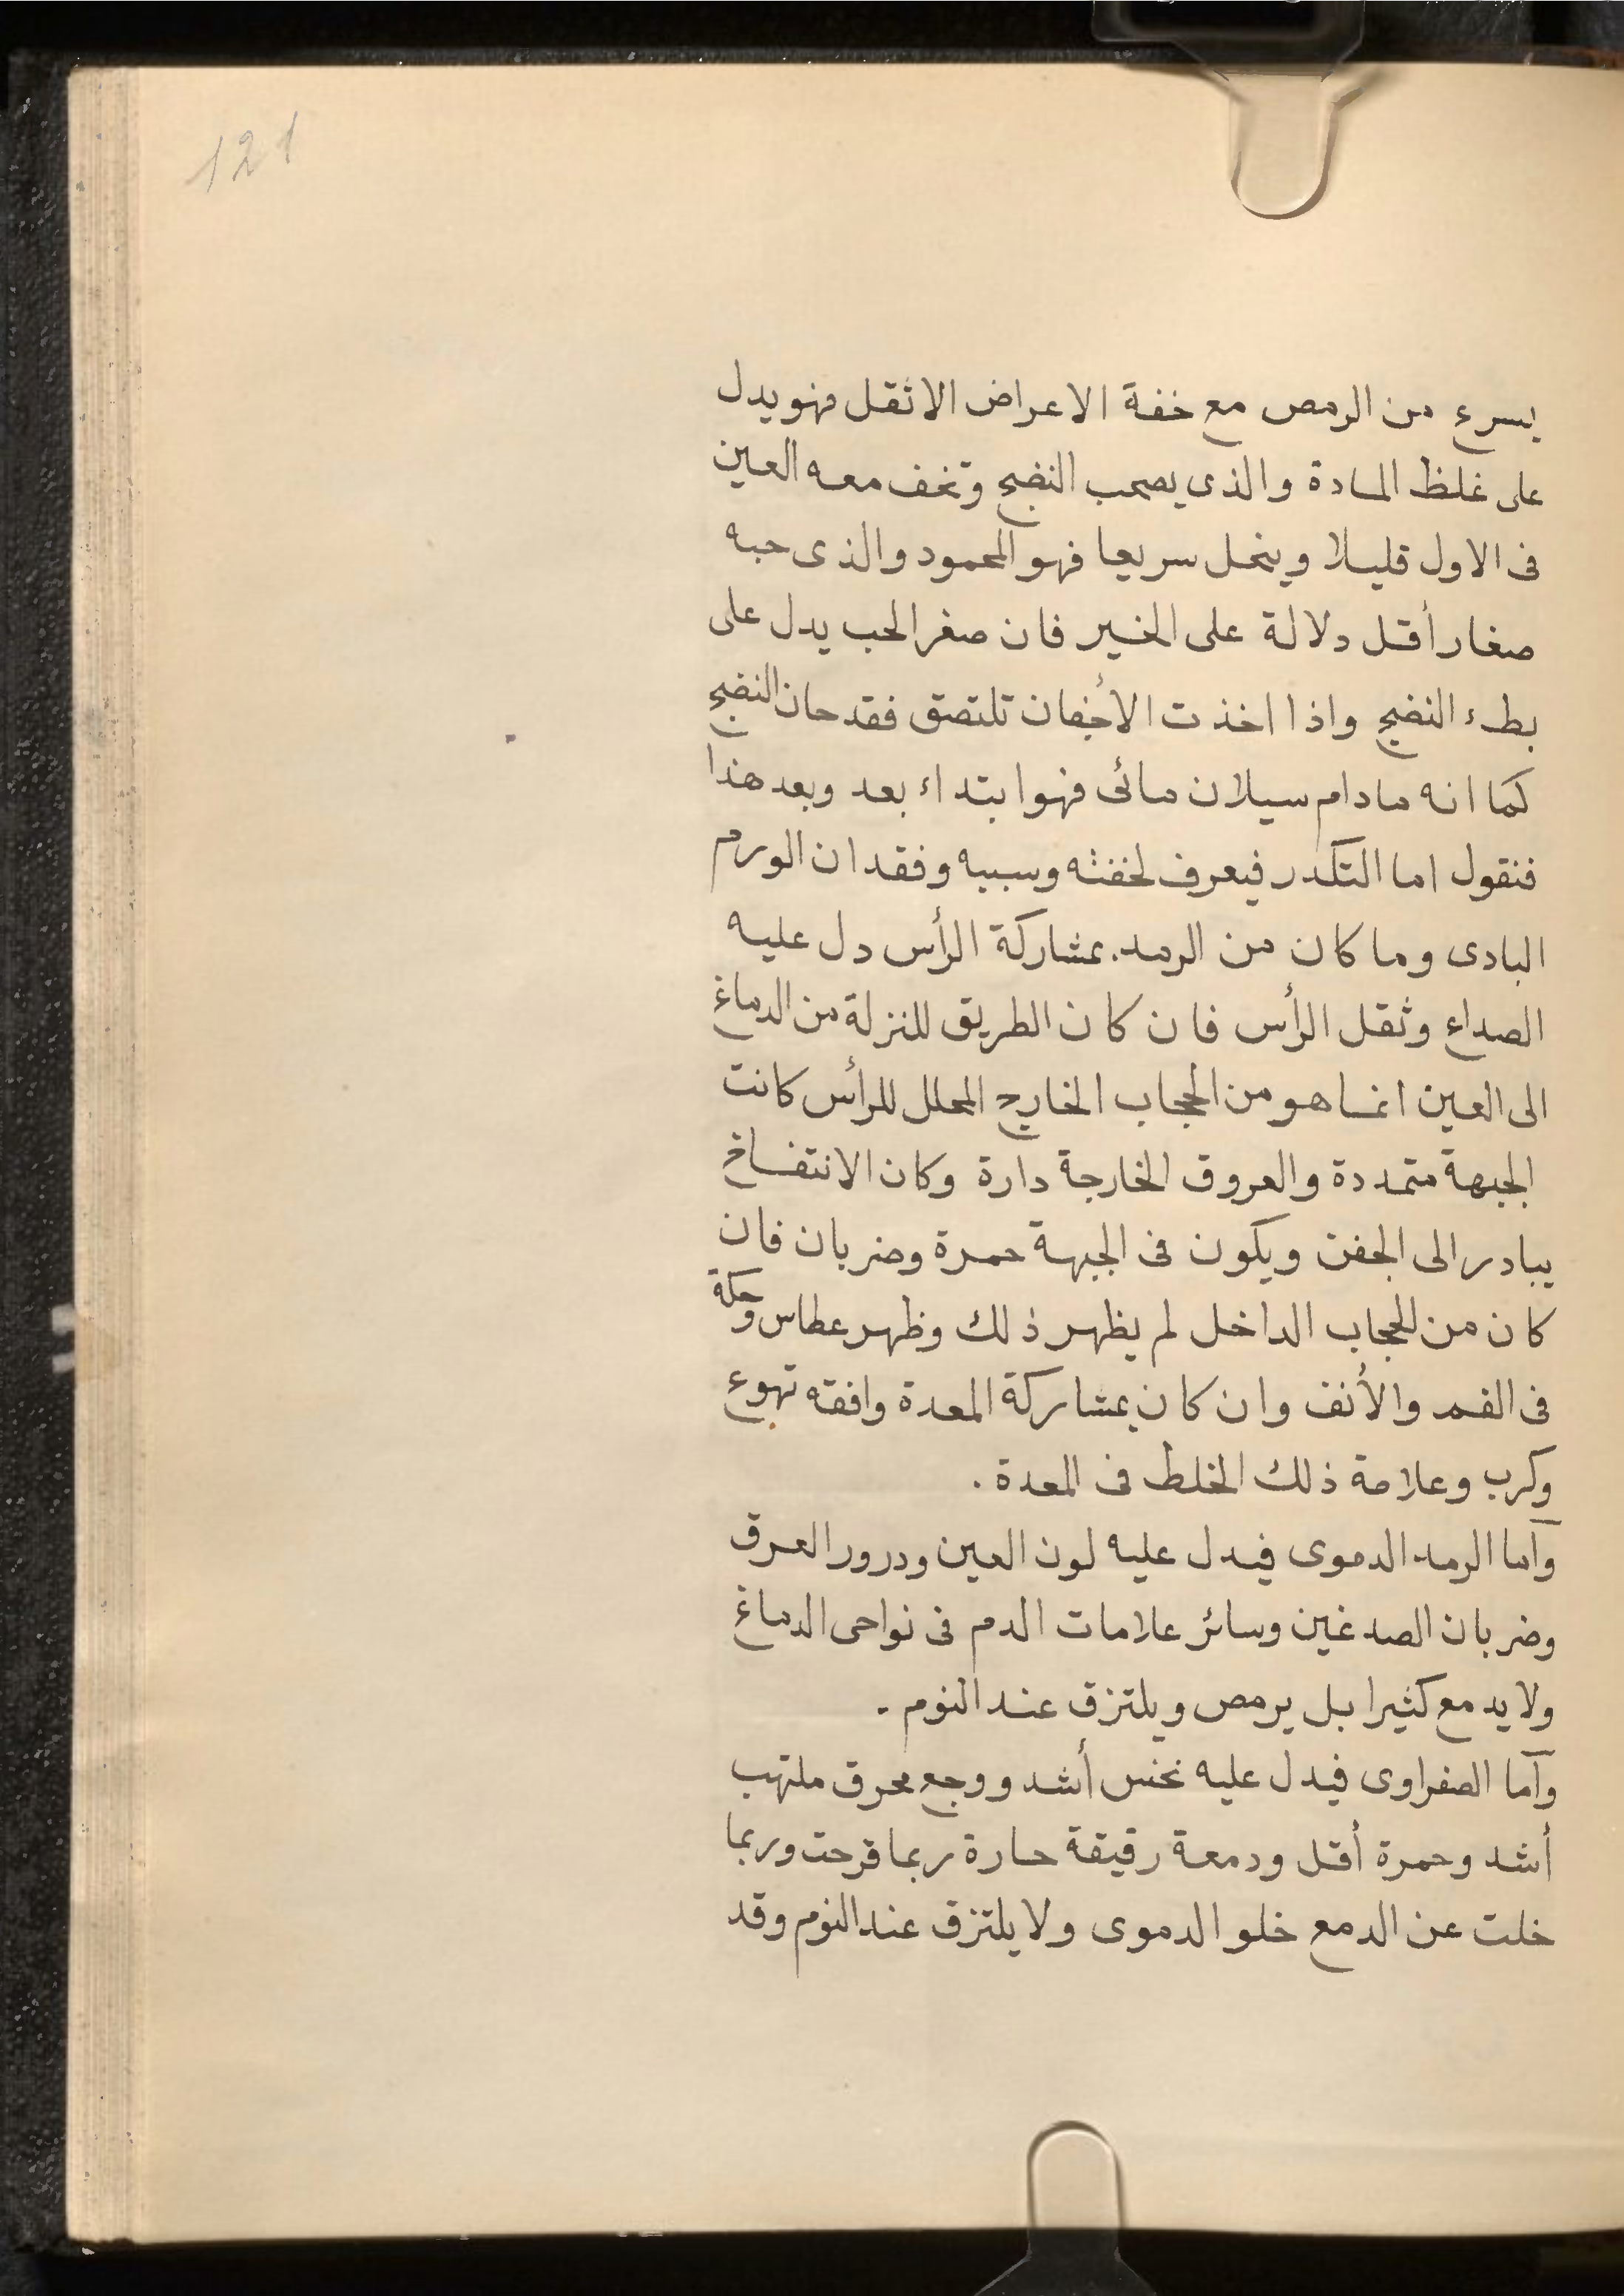 121
يسرع من الرمص مع خفة الاعراض الاثقل فهو يدل
على غلظ المادة والذى يصحب النضج وتخف معه العين
فى الاول قليلا وينحل سريعا فهو المحمود والذى حبه
صغار أقل دلالة على الخير فان صغر الحب يدل على
بطء النضج واذا اخذت الأجفان تلتصق فقد حان النضج
كما انه مادام سيلان مائى فهو ابتداء بعد وبعد هذا
فنقول اما التكدر فيعرف لخفته وسببه وفقدان الورم
البادى وما كان من الرمد بمشاركة الرأس دل عليه
الصداع وثقل الرأس فان كان الطريق للنزلة من الدماغ
الى العين انما هو من الحجاب الخارج المحلل للرأس كانت
الجبهة متمددة والعروق الخارجة دارة وكان الانتفاخ
يبادر الى الجفن ويكون فى الجبهة حمرة وضربان فان
كان من الحجاب الداخل لم يظهر ذلك وظهر عطاس وحكة
فى الفم والأنف وان كان بمشاركة المعدة وافقه تهوع
وكرب وعلامة ذلك الخلط فى المعدة .
وأما الرمد الدموى فيدل عليه لون العين ودرور العرق
وضربان الصدغين وسائر علامات الدم فى نواحى الدماغ
ولا يدمع كثيرا بل يرمص ويلتزق عند النوم .
وأما الصفراوى فيدل عليه نخس أشد ووجع محرق ملتهب
أشد وحمرة أقل ودمعة رقيقة حارة ربما قرحت وربما
خلت عن الدمع خلو الدموى ولا يلتزق عند النوم وقد